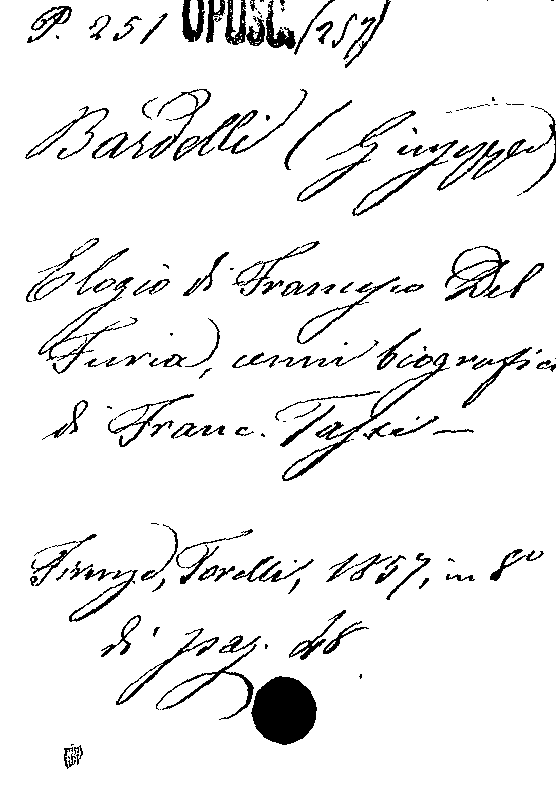 P. 251 OPUSC. (257)
Bardelli (Giuseppe)
Elogio di Francesco Del
Furia, cenni biografici
di Franc. Tassi —
Firenze, Torelli, 1857, in 8º
di pag. 48